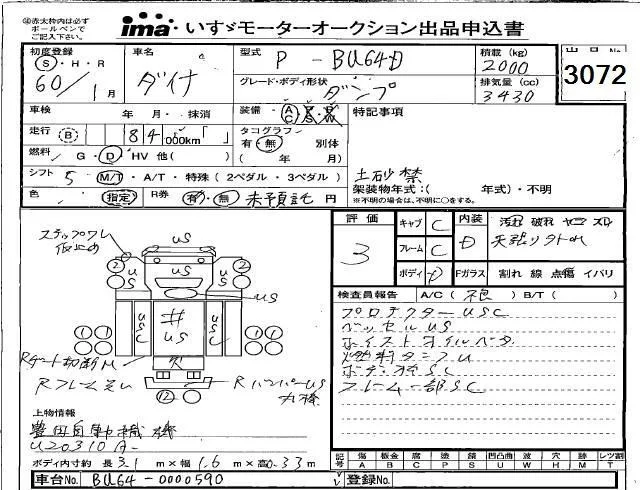 ㊟赤太枠内は必ず
ボールペンで
ご記入下さい。
ima いすゞモーターオークション出品申込書
初度登録 S・H・R 60/1月
車名 ダイナ
型式 P-BU64D
積載(kg) 2000
出品No.
3072
グレード・ボディ形状 ダンプ
排気量(cc) 3430
車検 年 月・ 抹消
装備・AC
特記事項
走行 B 84 000km
タコグラフ 有・無 別体
( 年 月)
燃料 G・D・HV 他( )
土砂禁
シフト 5 M/T・A/T・特殊(2ペダル・3ペダル)
架装物年式:( 年式)・不明
※不明の場合は、不明に○をする。
色 指定 R券 有・無 未預託 円
評価 3
キャブ C
フレーム C
ボディ D
内装 D 汚れ 破れ ヤニ スレ
天張り外れ
Fガラス 割れ 線 点傷 イバリ
ステップワレ
仮止め
US
US
検査員報告 A/C( ) B/T( )
プロテクターUSC
ベッセルUS
ホイストオイルベタ
燃料タンクU
フレーム一部SC
Rゲート切断M
RバンパーUS
上物情報
豊田自動織機
U20310A-
ボディ内寸約 長3.1 m×幅1.6 m×高0.33m
記号 傷 板金 腐 塗 錆 凹凸曲 波 穴 欠 レツ割
A B C P S U W H M T
車台No. BU64-0000590
登録No.